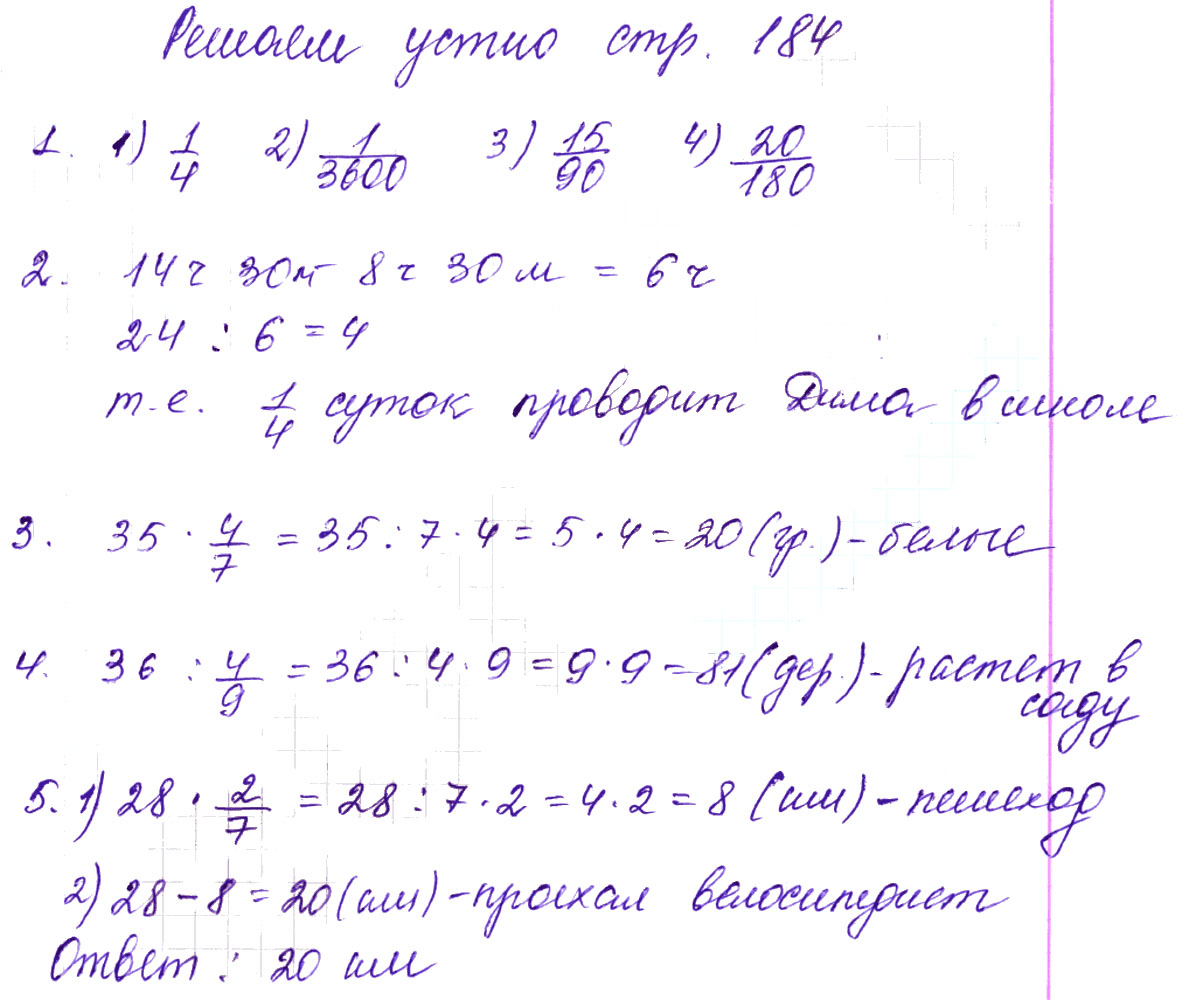 Решаем устно стр. 184
1. 1) 1/4 2) 1/3600 3) 15/90 4) 20/180
2. 14ч 30м - 8ч 30м = 6ч
24 : 6 = 4
т.е. 1/4 суток проводит Дима в школе
3. 35 · 4/7 = 35 : 7 · 4 = 5 · 4 = 20 (гр.) - белые
4. 36 : 4/9 = 36 : 4 · 9 = 9 · 9 = 81 (дер.) - растет в
саду
5. 1) 28 · 2/7 = 28 : 7 · 2 = 4 · 2 = 8 (км) - пешеход
2) 28 - 8 = 20 (км) - проехал велосипедист
Ответ : 20 км